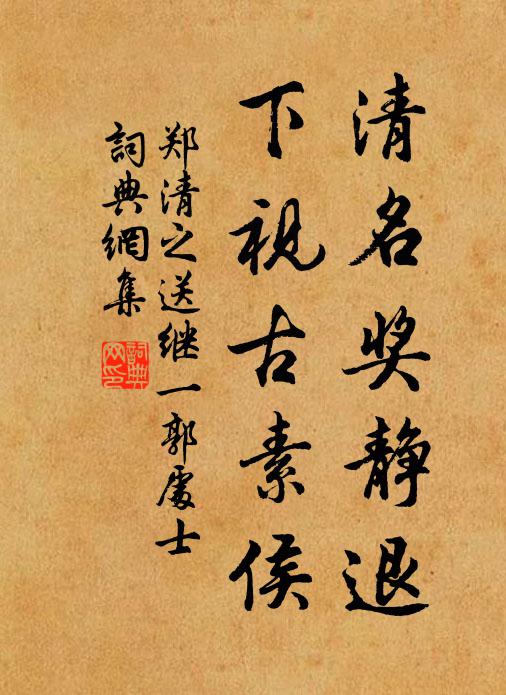 清名奖静退
下视古素侯
郑清之送继一郭處士
詞典網集
詞典網印